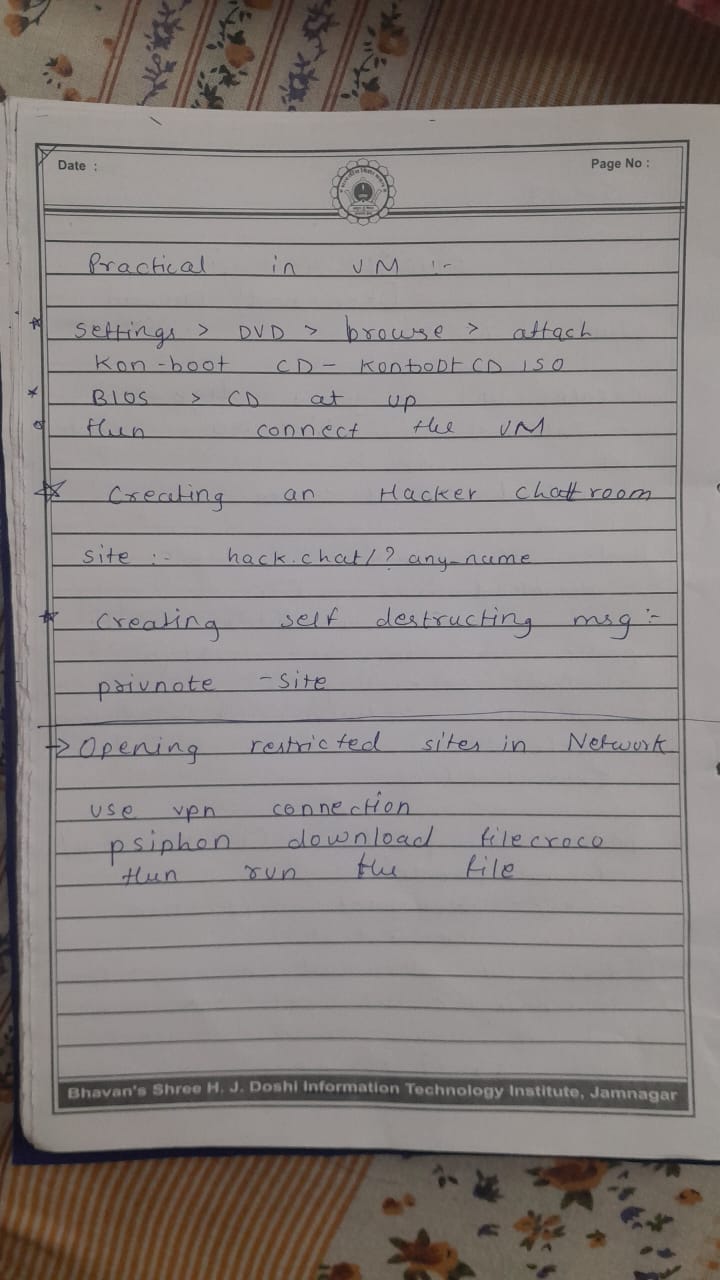 Date :
Page No :
Practical in VM :-
* settings > DVD > browse > attach
Kon-boot CD - KonbootCD ISO
* BIOS > CD at up
then connect the VM
☆ Creating an Hacker Chatt room
site :- hack.chat/?any_name
* Creating self destructing msg :-
privnote - site
→ Opening restricted sites in Network
use vpn connection
psiphon download filecroco
then run the file
Bhavan's Shree H. J. Doshi Information Technology Institute, Jamnagar